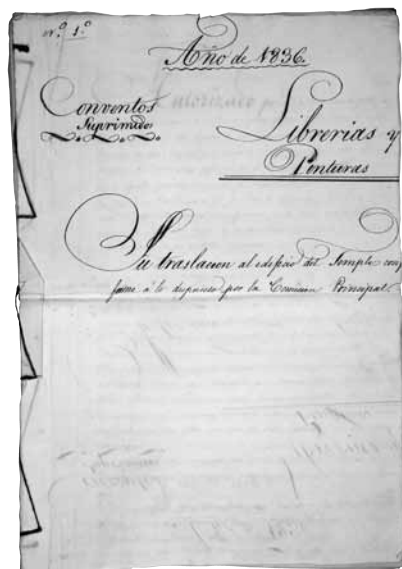 nº 1º
Año de 1836.
Conventos
Suprimidos
Librerias y
Pinturas
Su traslacion al edificio del Temple con
forme á lo dispuesto por la Comision Principal